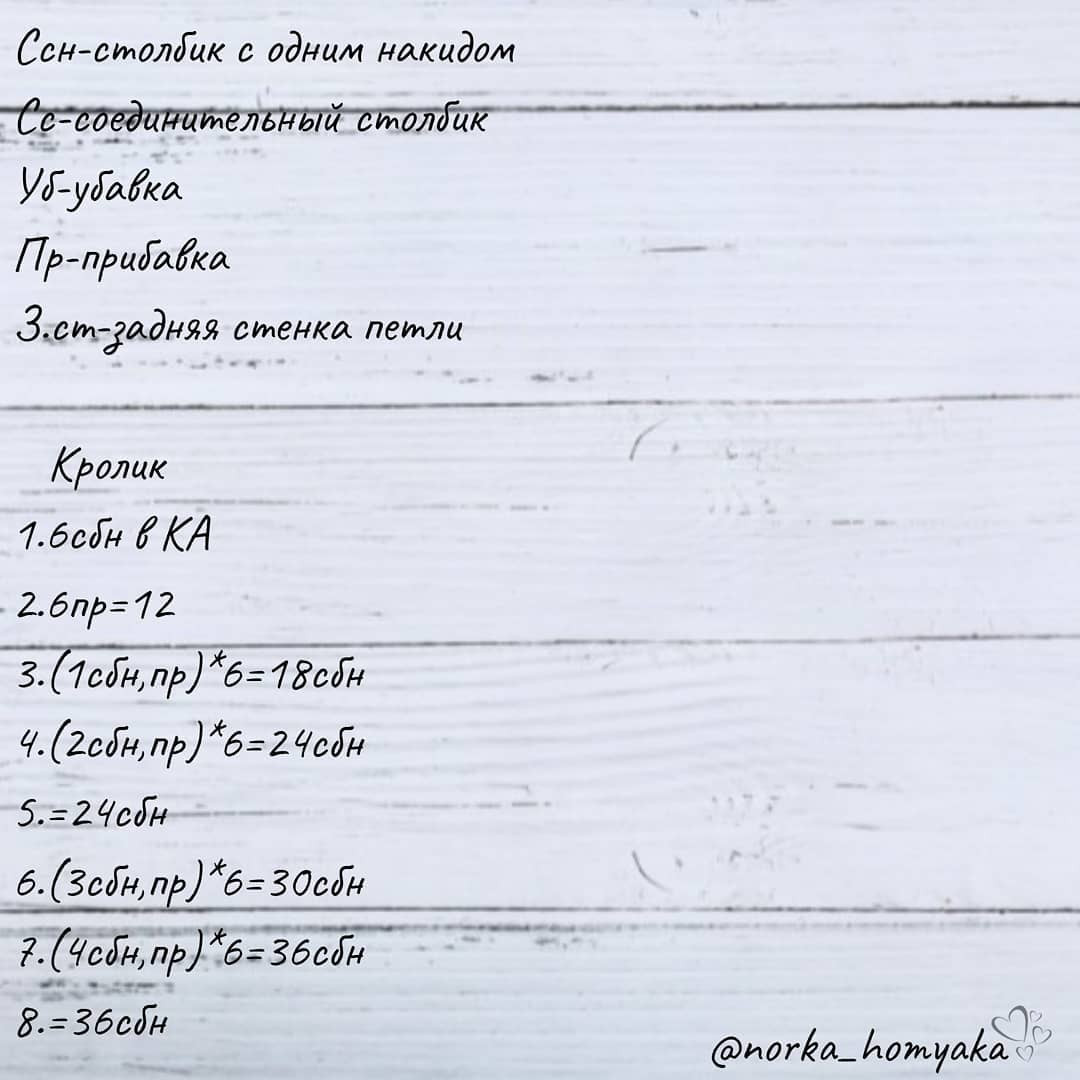 Ссн-столбик с одним накидом
Сс-соединительный столбик
Уб-убавка
Пр-прибавка
З.ст-задняя стенка петли
Кролик
1.6сбн в КА
2.6пр=12
3.(1сбн,пр)*6=18сбн
4.(2сбн,пр)*6=24сбн
5.=24сбн
6.(3сбн,пр)*6=30сбн
7.(4сбн,пр)*6=36сбн
8.=36сбн
@norka_homyaka